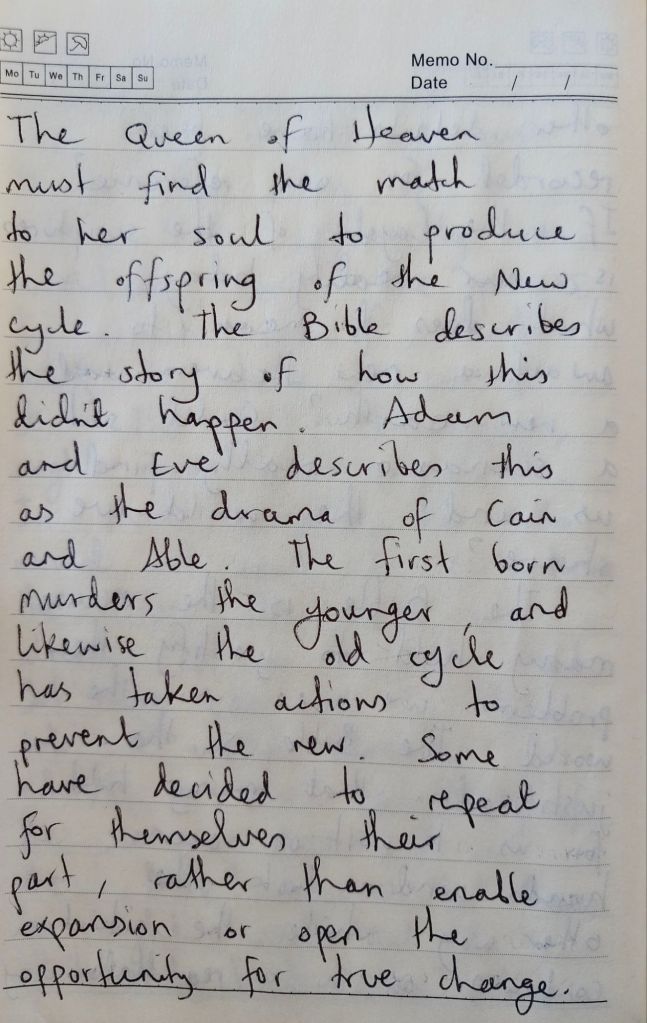 Mo Tu We Th Fr Sa Su
Memo No.
Date / /
The Queen of Heaven
must find the match
to her soul to produce
the offspring of the New
cycle. The Bible describes
the story of how this
didn't happen. Adam
and Eve describes this
as the drama of Cain
and Able. The first born
murders the younger, and
likewise the old cycle
has taken actions to
prevent the new. Some
have decided to repeat
for themselves their
part, rather than enable
expansion or open the
opportunity for true change.